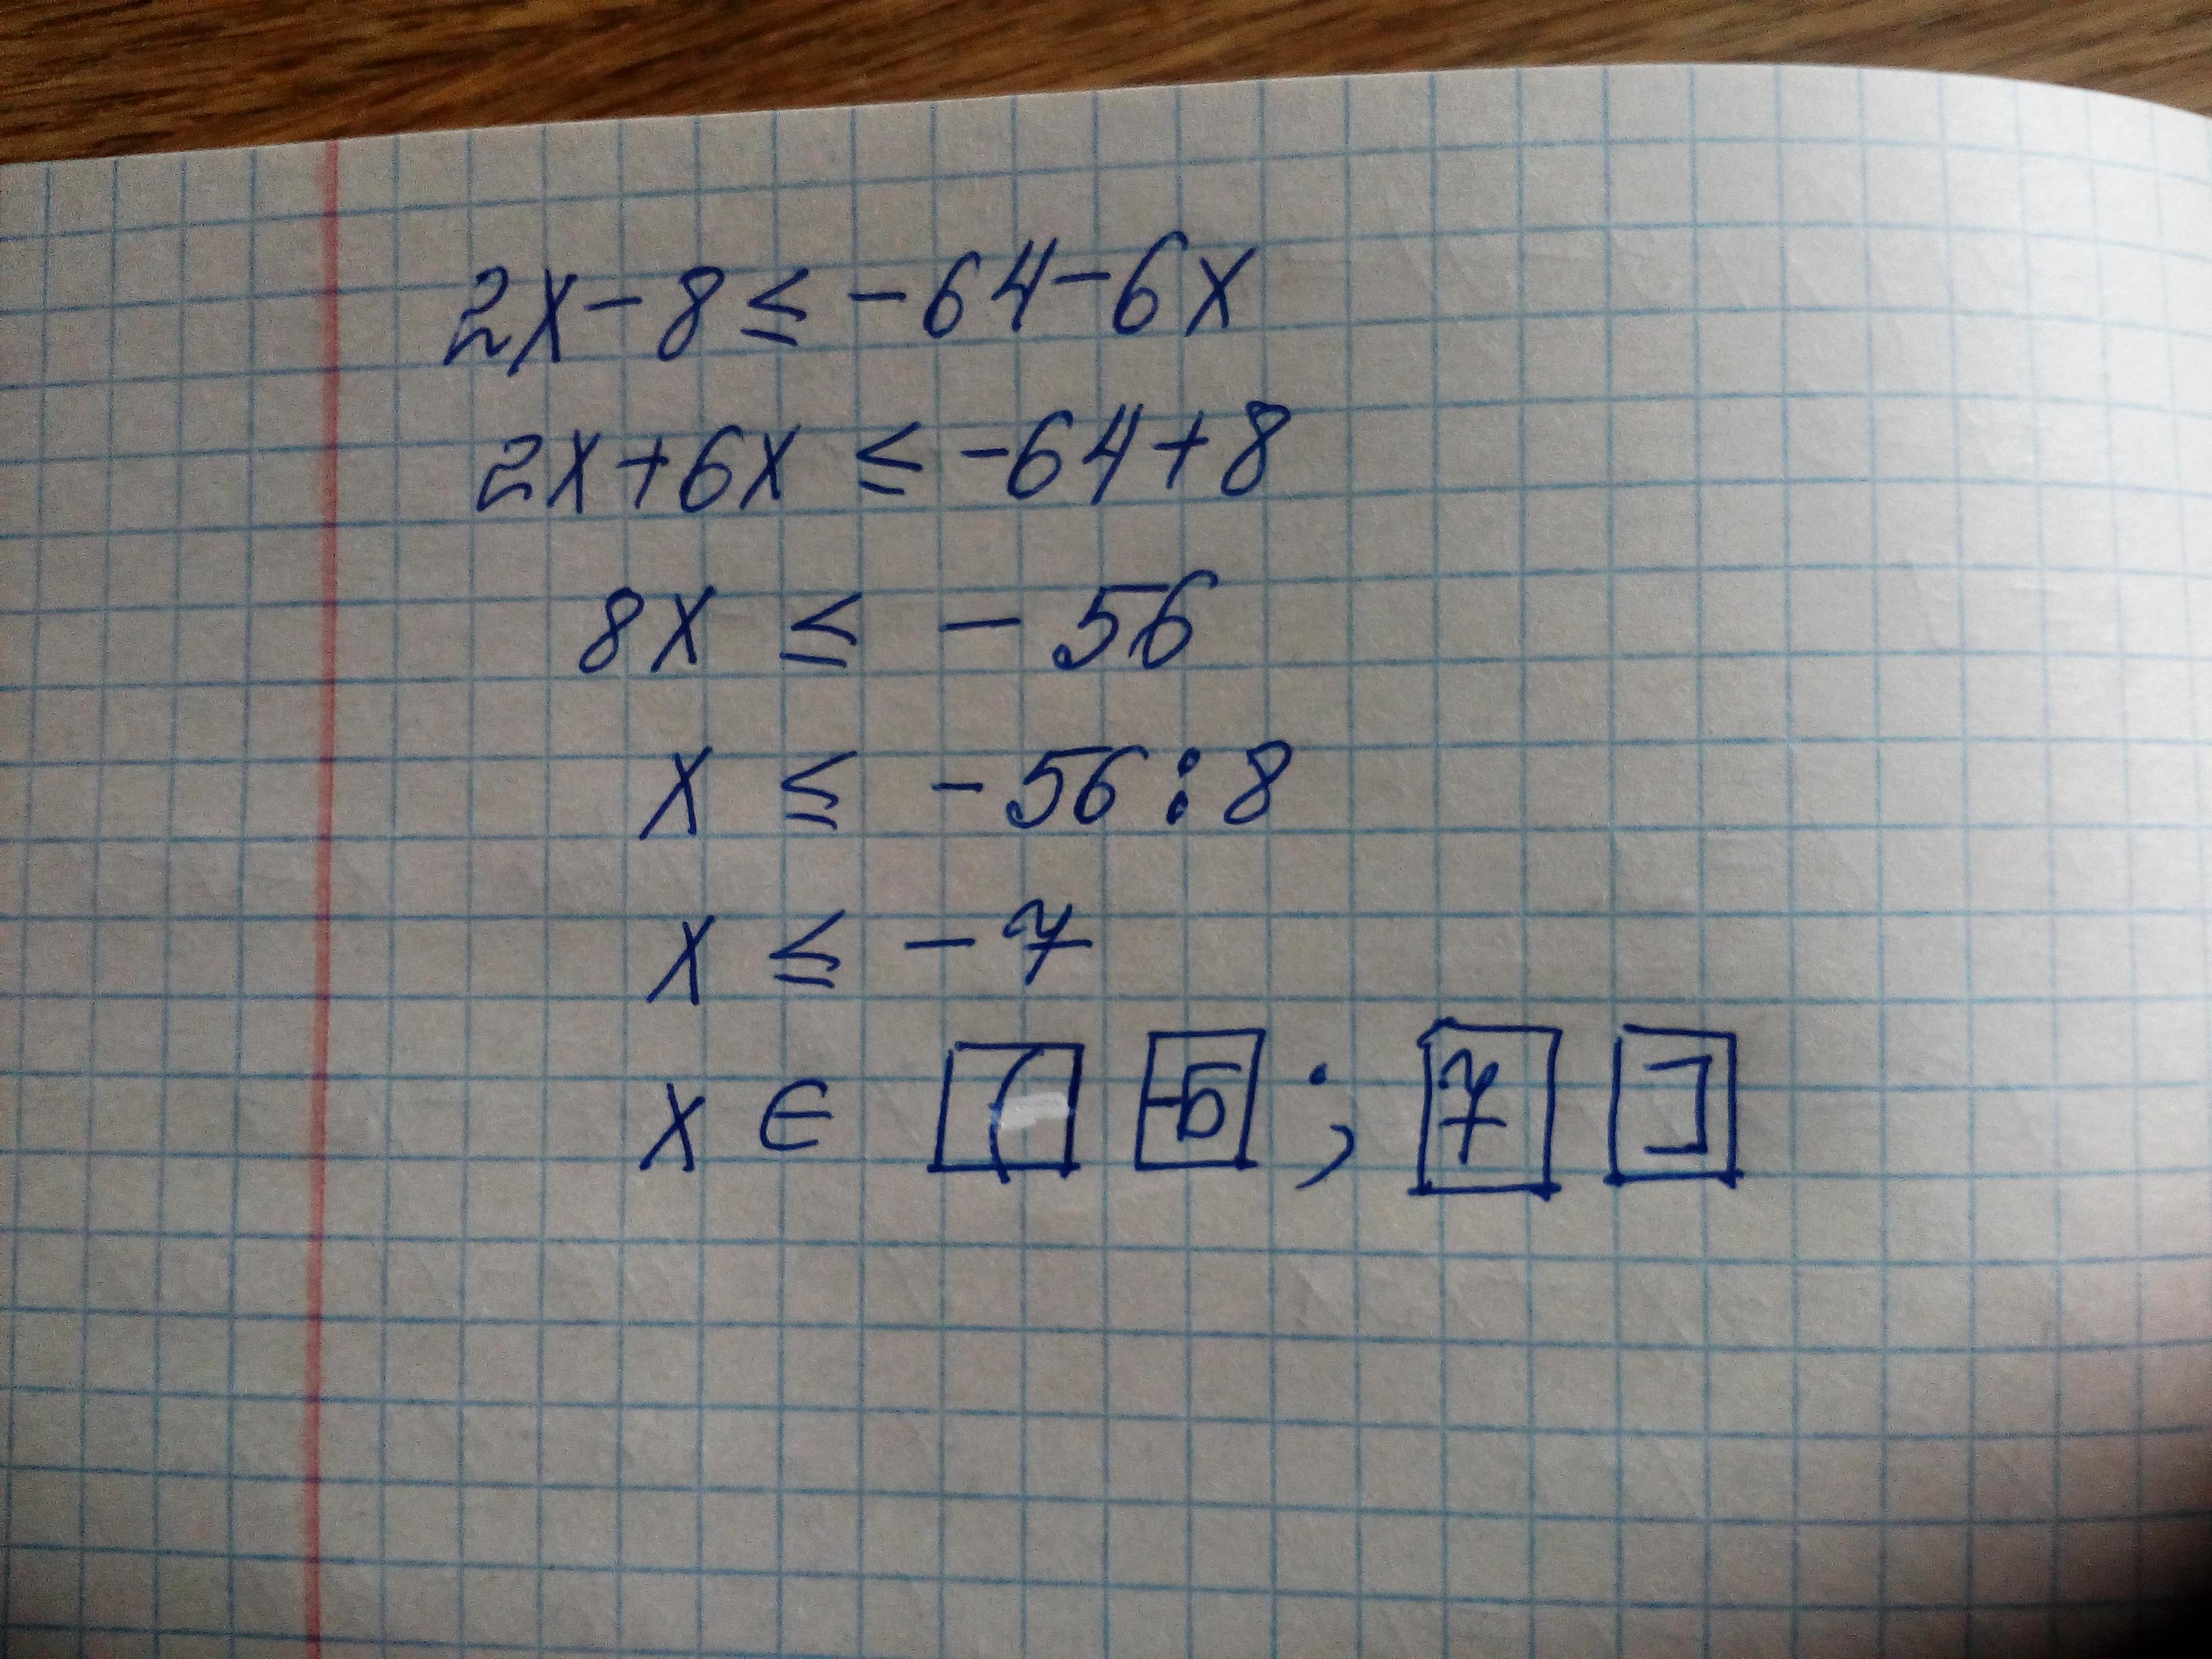 2x-8≤-64-6x
2x+6x≤-64+8
8x≤-56
x≤-56:8
x≤-7
x∈ ( -Б ; 7 ]